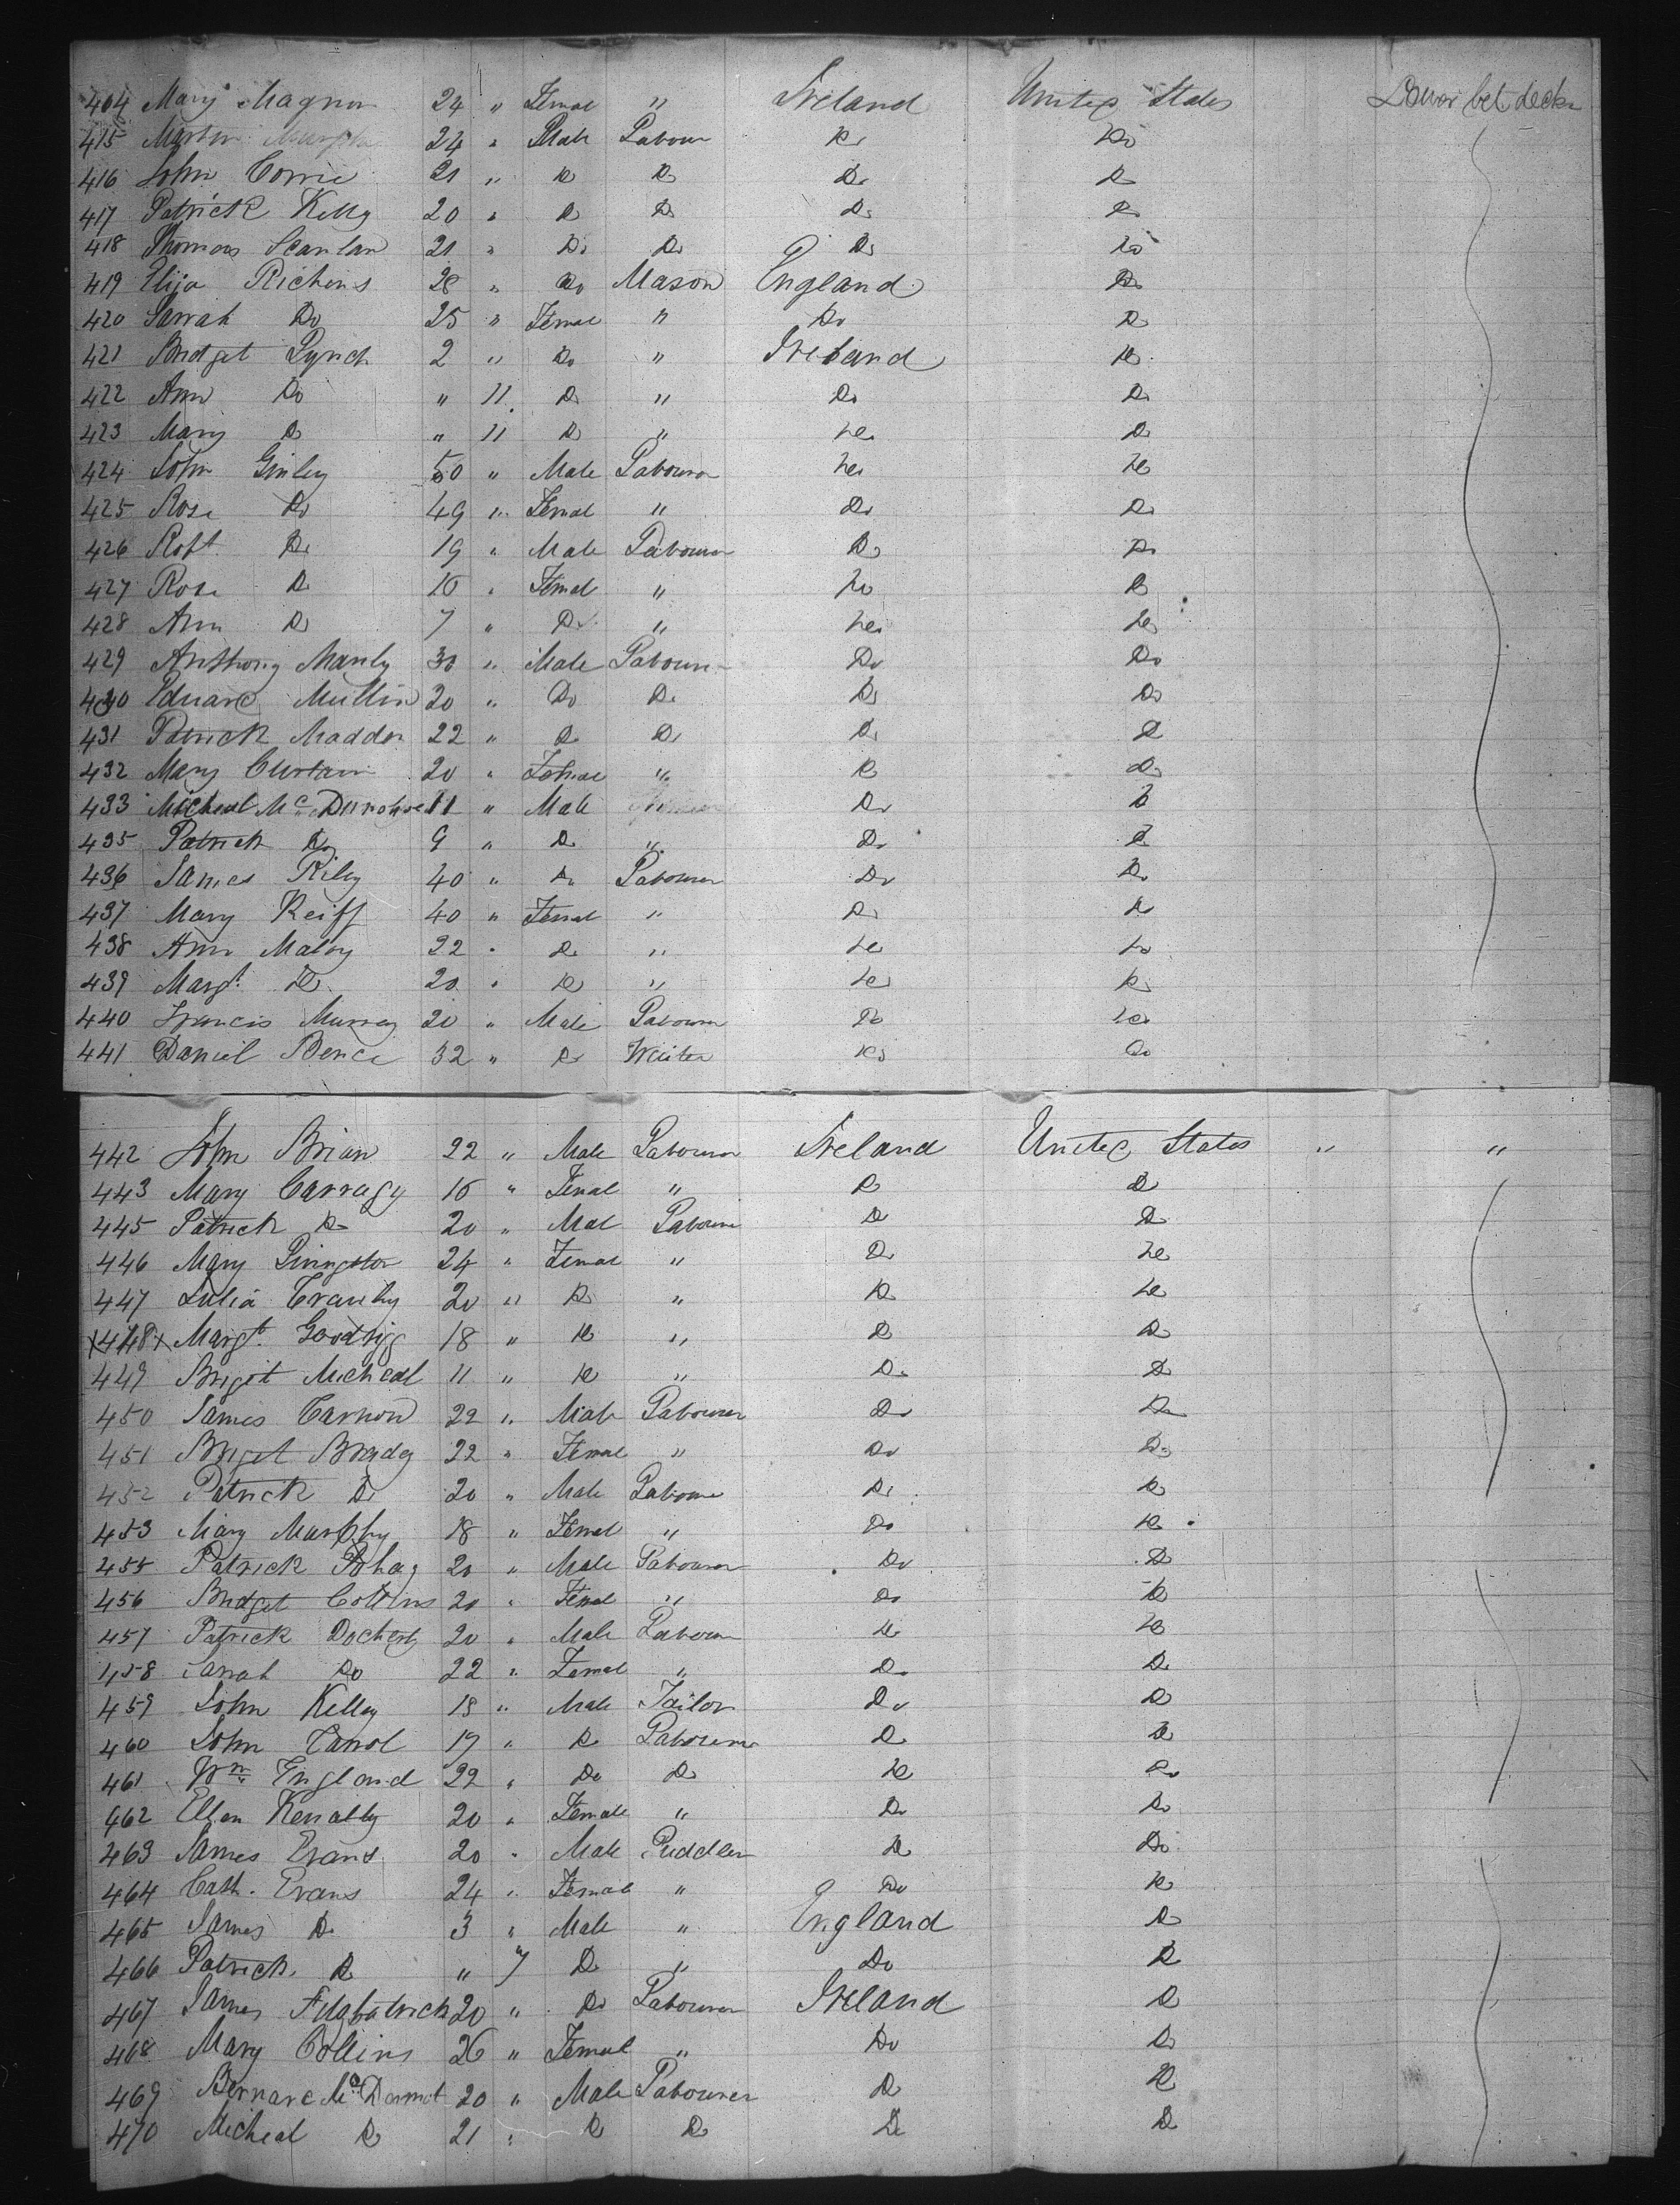 404 Mary Magnor 24 " Femal " Ireland United States Lower bet decks
415 Martin Murphy 24 " Male Labour Do Do
416 John Corrie 21 " Do Do Do Do
417 Patrick Kelly 20 " Do Do Do Do
418 Thomas Scanlan 21 " Do Do Do Do
419 Elija Richens 28 " Do Mason England Do
420 Sarrah Do 25 " Femal " Do Do
421 Bridget Lynch 2 " Do " Ireland Do
422 Ann Do " 11 Do " Do Do
423 Mary Do " 11 Do " Do Do
424 John Ginley 50 " Male Labourer Do Do
425 Rose Do 49 " Femal " Do Do
426 Robt. Do 19 " Male Labourer Do Do
427 Rose Do 16 " Femal " Do Do
428 Ann Do 7 " Do " Do Do
429 Anthony Manly 30 " Male Labourer Do Do
430 Eduard Mullin 20 " Do Do Do Do
431 Patrick Madden 22 " Do Do Do Do
432 Mary Curtain 20 " Femal " Do Do
433 Micheal Mc Donohoe 11 " Male Do Do
435 Patrick Do 9 " Do " Do Do
436 James Riley 40 " Do Labourer Do Do
437 Mary Keiff 40 " Femal " Do Do
438 Ann Maloy 22 " Do " Do Do
439 Margt. Do 20 " Do " Do Do
440 Francis Murray 20 " Male Labourer Do Do
441 Daniel Bence 32 " Do Waiter Do Do
442 John Brian 22 " Male Labourer Ireland United States " "
443 Mary Carragy 16 " Femal " Do Do
445 Patrick Do 20 " Mal Labourer Do Do
446 Mary Livingston 24 " Femal " Do Do
447 Julia Crauby 20 " Do " Do Do
x448x Margt. Goodrigg 18 " Do " Do Do
449 Briget Micheal 11 " Do " Do Do
450 James Carnon 22 " Male Labourer Do Do
451 Briget Brady 22 " Femal " Do Do
452 Patrick Do 20 " Male Labourer Do Do
453 Mary Murphy 18 " Femal " Do Do
455 Patrick 20 " Male Labourer Do Do
456 Bridget Collins 20 " Femal " Do Do
457 Patrick Docherty 20 " Male Labourer Do Do
458 Sarrah Do 22 " Femal " Do Do
459 John Kelley 19 " Male Tailor Do Do
460 John Carrol 19 " Do Labourer Do Do
461 Wm England 22 " Do Do Do Do
462 Ellen Kenally 20 " Female " Do Do
463 James Evans 20 " Male Puddler Do Do
464 Cath. Evans 24 " Female " Do Do
465 James Do 3 " Male " England Do
466 Patrick Do " 7 Do " Do Do
467 James Fitzbatrick 20 " Do Labourer Ireland Do
468 Mary Collins 26 " Femal " Do Do
469 Bernard Mc Dermot 20 " Male Labourer Do Do
470 Micheal Do 21 " Do Do Do Do